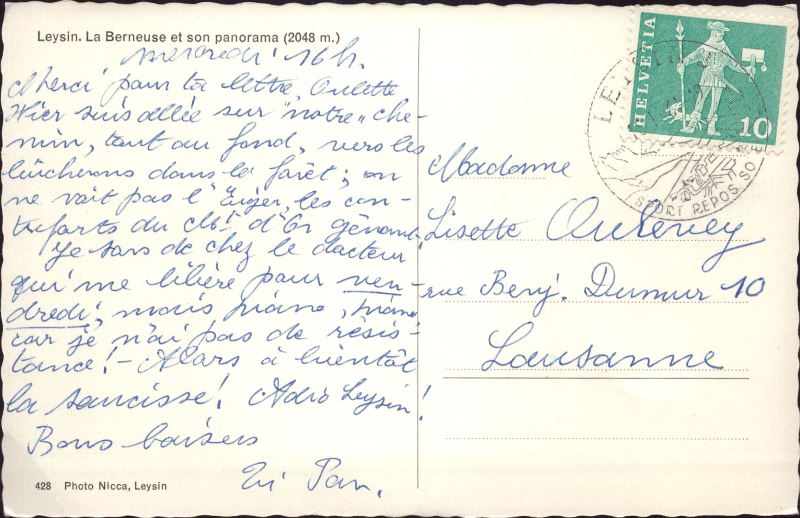 Leysin. La Berneuse et son panorama (2048 m.)
mercredi 16 h.
Merci pour ta lettre, Oulette
Hier suis allée sur "notre" che-
min, tout au fond, vers les
bûcherons dans la forêt; on
ne voit pas l'Eiger, les con-
treforts du Mt d'Or gênant.
Je sors de chez le docteur
qui me libère pour ven-
dredi; mais piano, piano
car je n'ai pas de résis-
tance! - Alors à bientôt
la saucisse! Adio Leysin!
Bons baisers
Pan.
428 Photo Nicca, Leysin
HELVETIA
10
SPORT REPOS SO
Madame
Lisette
rue Benj. Dumur 10
Lausanne